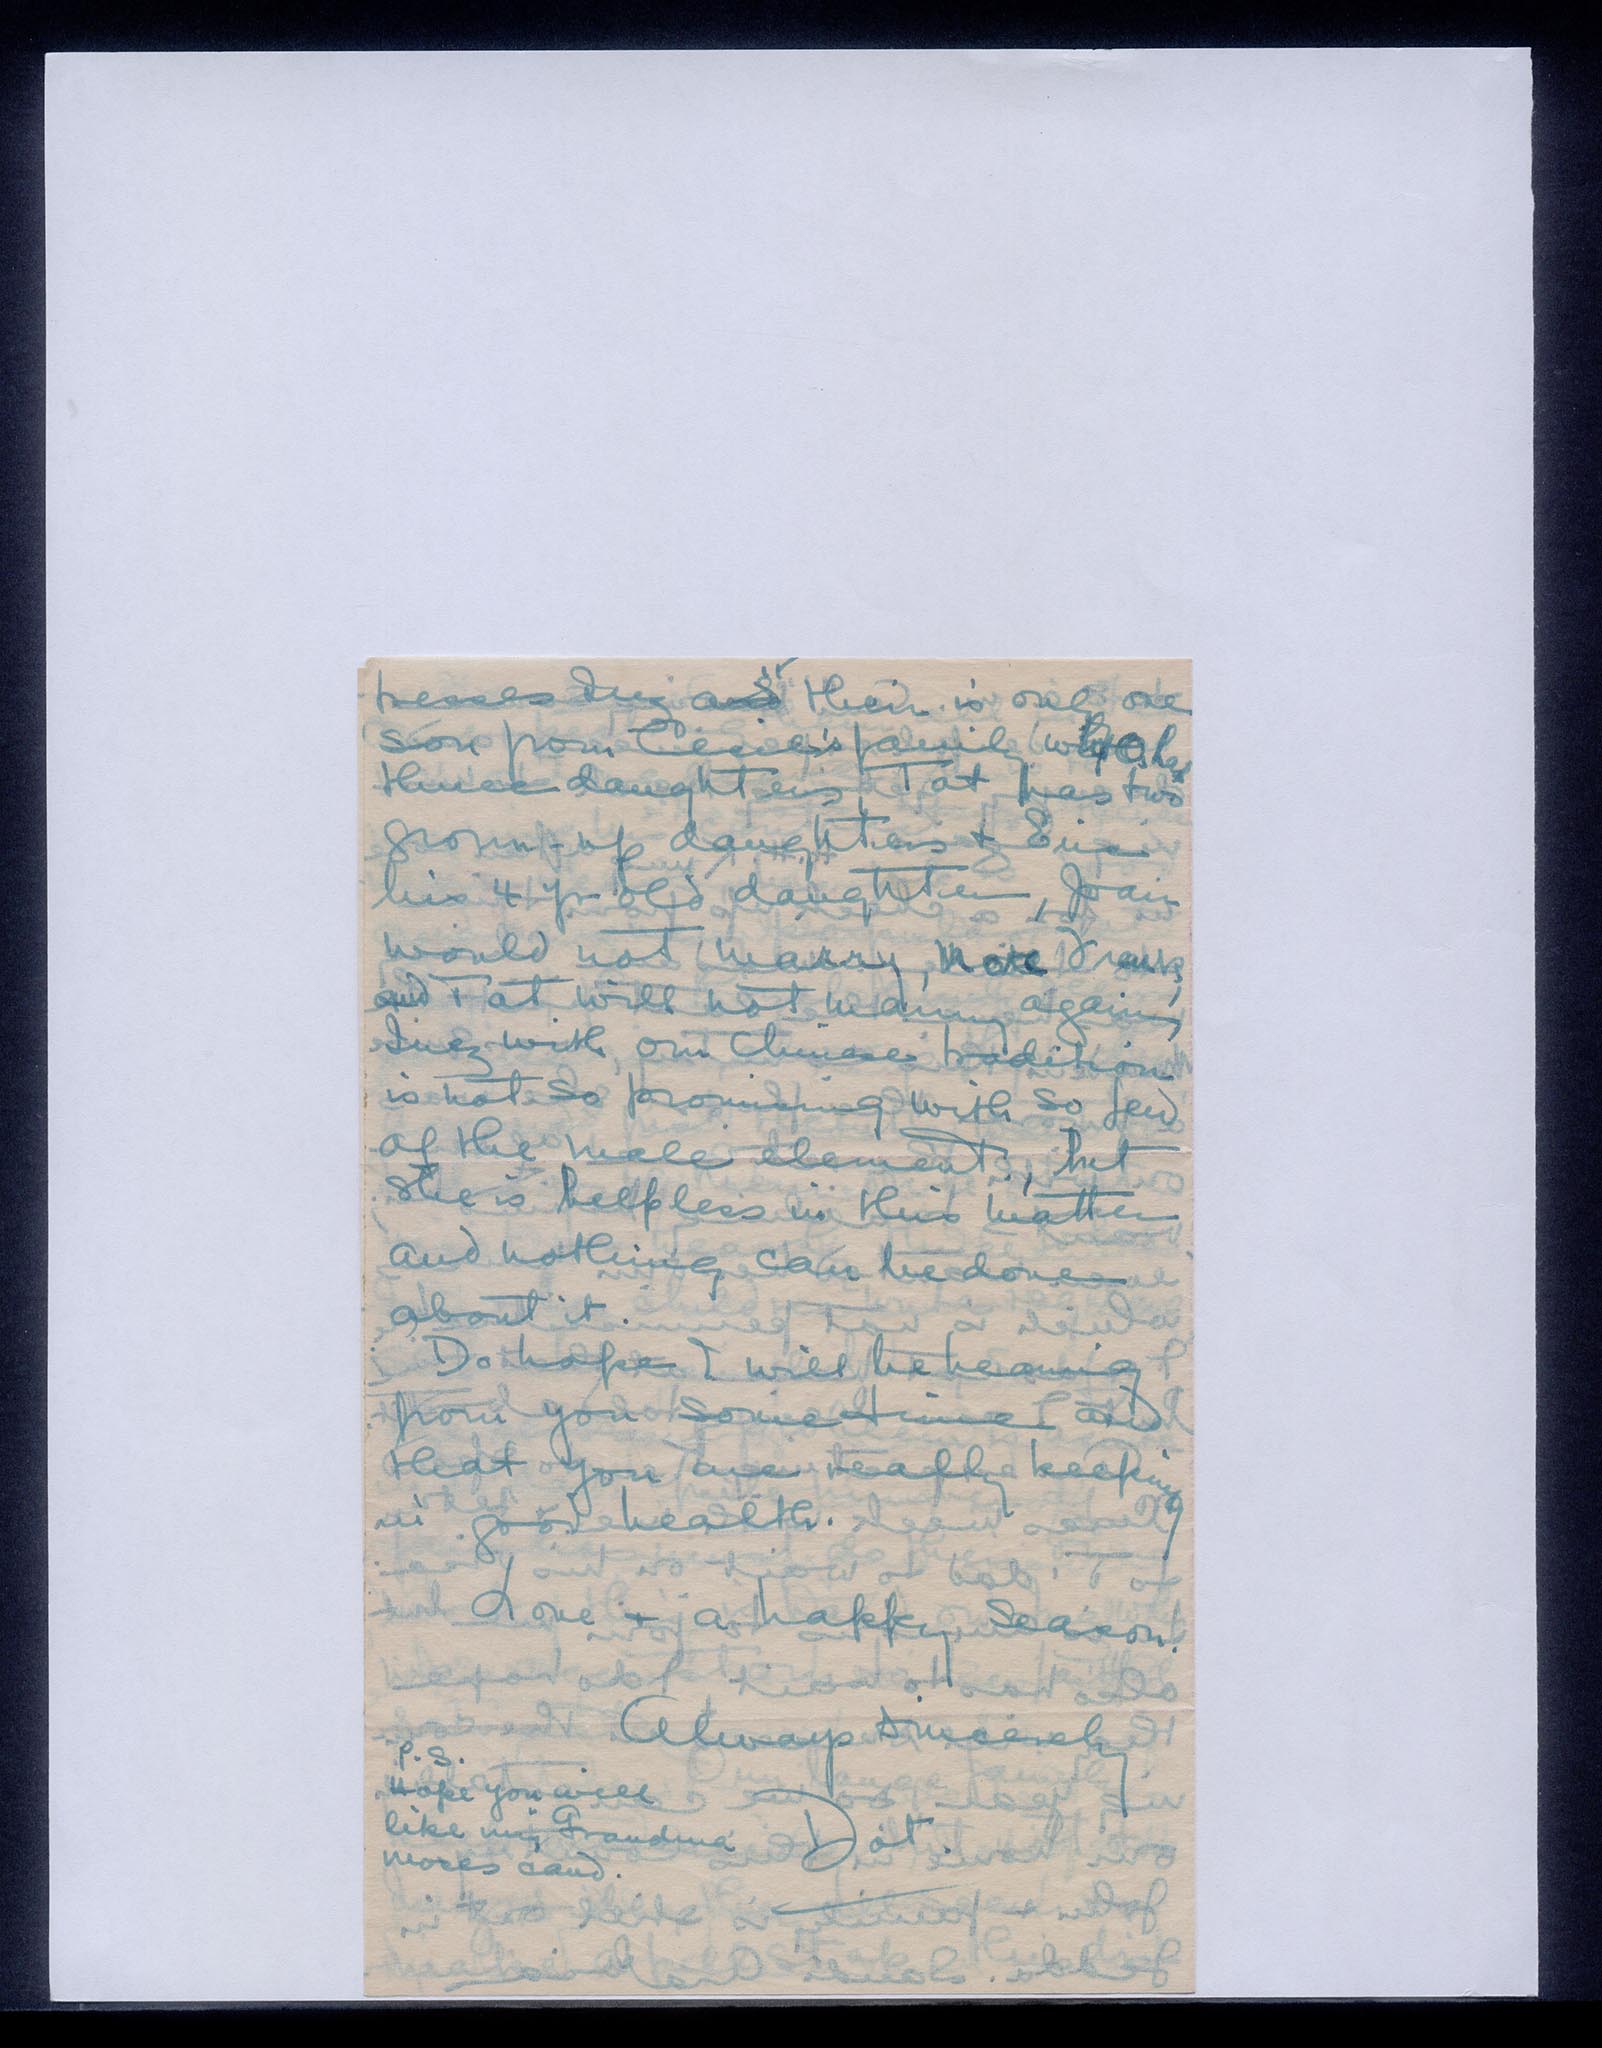 their is only one
son from Cecile's family who has
three daughters, Tat has two
grown-up daughters + Eric
his 4 yr old daughter, Joan
would not marry, nor Frank
and Tat will not marry again,
Inez with our Chinese tradition
is not so promising with so few
of the male element, but
she is helpless in this matter
and nothing can be done
about it.
Do hope I will be hearing
from you some time and
that you are really keeping
in good health.
Love + a happy season.
Always sincerely
Dot.
P.S.
Hope you will
like my Grandma
Moses card.